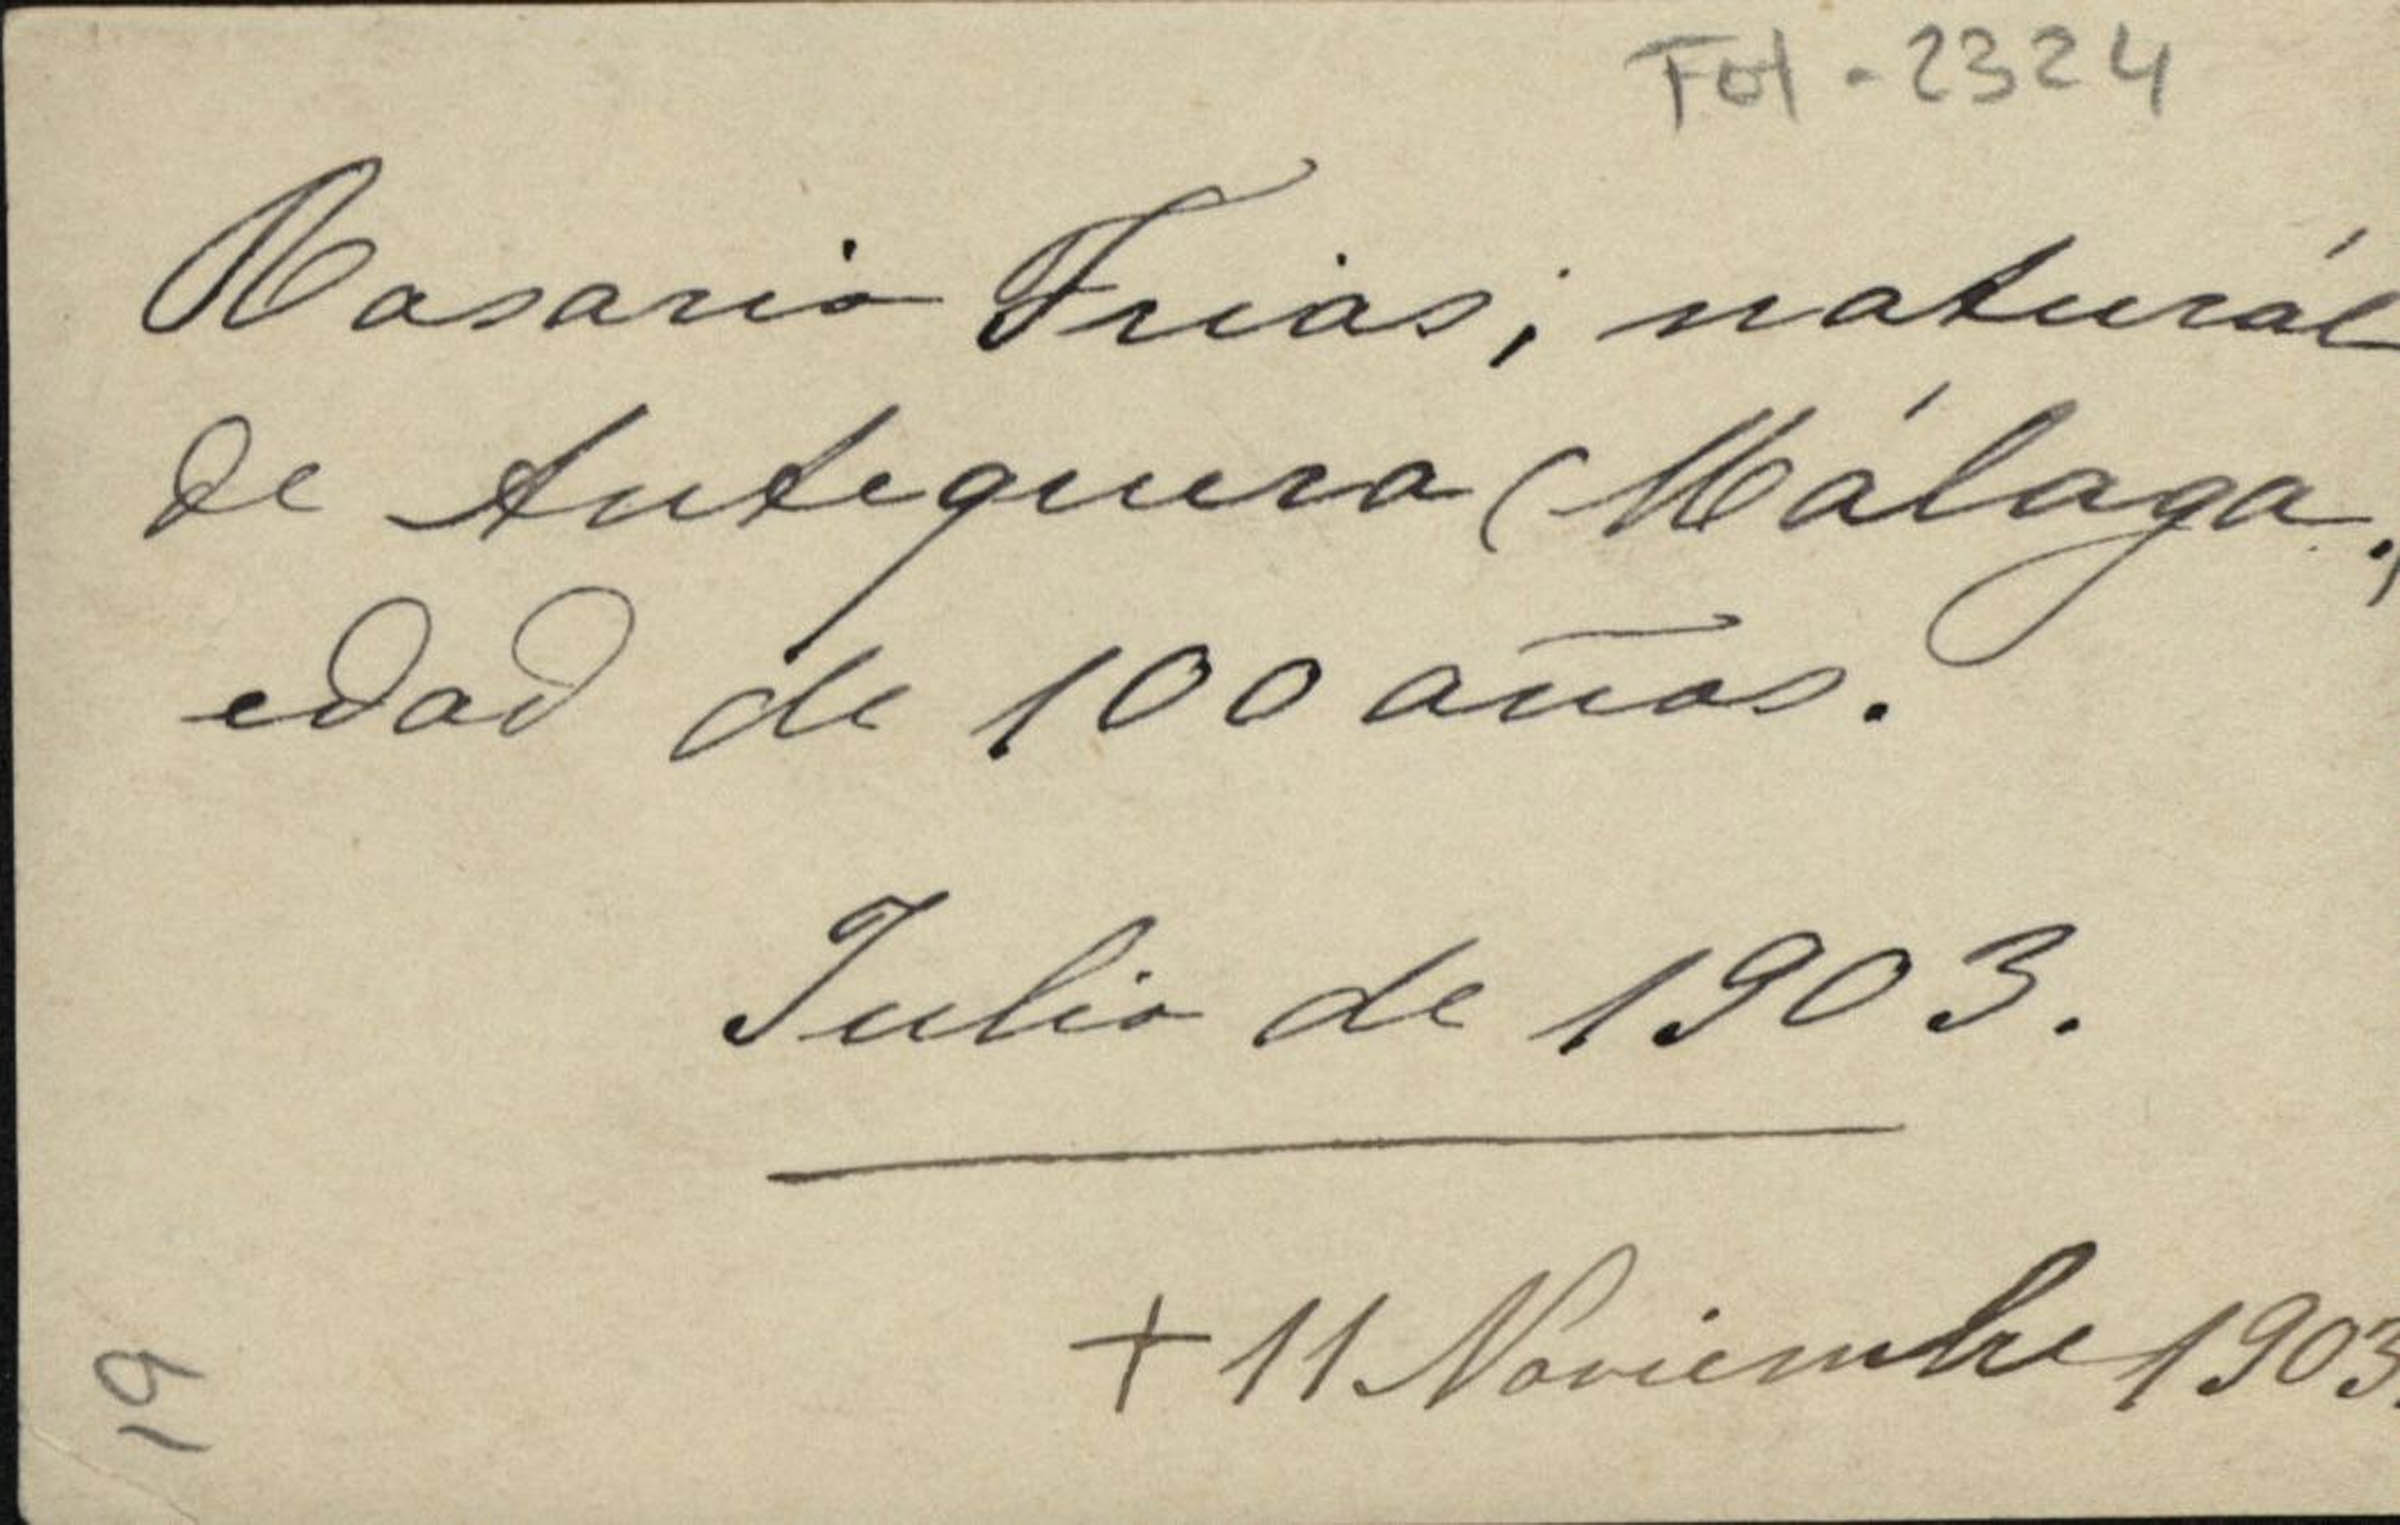 Fot - 2324
Rosario Frias; naturál
de Antequera (Málaga.,
edad de 100 años.
Julio de 1903.
+ 11 Noviembre 1903.
19